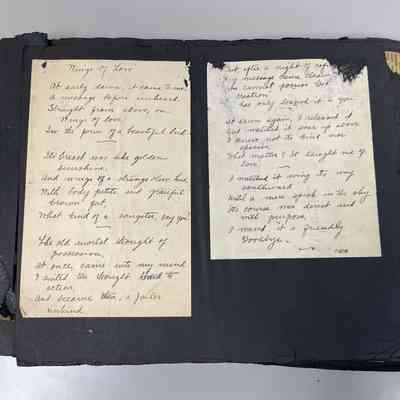 Wings of Love
At early dawn, it came to me
A message before unheard.
Straight from above, on
Wings of love
In the form of a beautiful bird.
Its breast was like golden
sunshine,
And wings of a strange blue hue,
With body petite and graceful
What kind of a songster, say you?
The old mortal thought of
possession,
At once came into my mind
I willed the thought to
action,
And became then, a jailer
unkind.
But after a night of
My message came clear
cannot possess God's
creation
has only loaned it to you
At dawn again, I released it
And watched it soar up above
I knew not the bird nor
species
What matter? It taught me of
love.
I watched it wing its way
southward
Until a mere speck in the sky
Its course was direct and
with purpose,
I waved it a friendly
Goodbye.